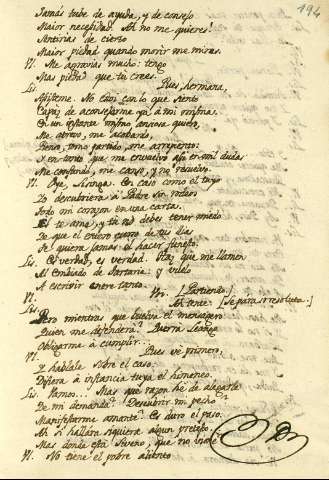 194
Jamás tube de ayuda, y de consejo
Maior necesidad. Ah no me quieres!
Sentirias de cierto
Maior piedad quando morir me miras.
Ul. Me agravias mucho: tengo
Mas piedad que tu crees.
Lis. Pues, hermana,
Asísteme. No estoi con lo que siento
Capaz de aconsejarme yo á mi misma.
En un instante mismo quisiera
Me atrevo, me acobardo,
Tomo un partido, me arrepiento:
Y en tanto que me envuelvo así en mil dudas
Me confundo, me canso, y no resuelvo.
Ul. Oye, Siringa. En caso como el tuyo
Yo descubriera á Padre sin rodeos
Todo mi corazon en una carta.
El te ama, y tu no debes tener miedo
De que el entero curso de tus dias
Te quiera jamas el hacer funesto.
Lis. Es verdad, es verdad. Haz que me llamen
Al Embiado de Tartaria: y vuelo
A escribir entre tanto. [Partiendo]
Ul. Voi.
Lis. Ah tente! [Se para irresoluta]
Pero mientras que buelve el mensagero
Quien me defenderá? Querrá
Obligarme á cumplir...
Ul. Pues ve primero,
Y háblale sobre el caso.
Difiera á instancia tuya el himeneo.
Lis. Vamos... Mas que razon he de alegarle
De mi demanda? Descubrir mi pecho?
Manifestarme amante? Es duro el paso.
Ah si hallára siquiera algun pretexto!
Mas donde está Siveno, que no
Ul. No tiene el pobre aliento